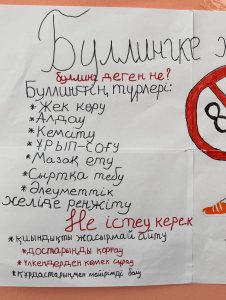 Буллингке
буллинг деген не?
Буллингтің түрлері:
*Жек көру
*Алдау
*Кеміту
*Ұрып-соғу
*Мазақ ету
*Сыртқа тебу
*Әлеуметтік
желіде ренжіту
Не істеу керек
*қиындықты жасырмай айту
*достарыңды қорғау
*үлкендерден көмек сұрау
*құрдастарыңмен мейірімді болу